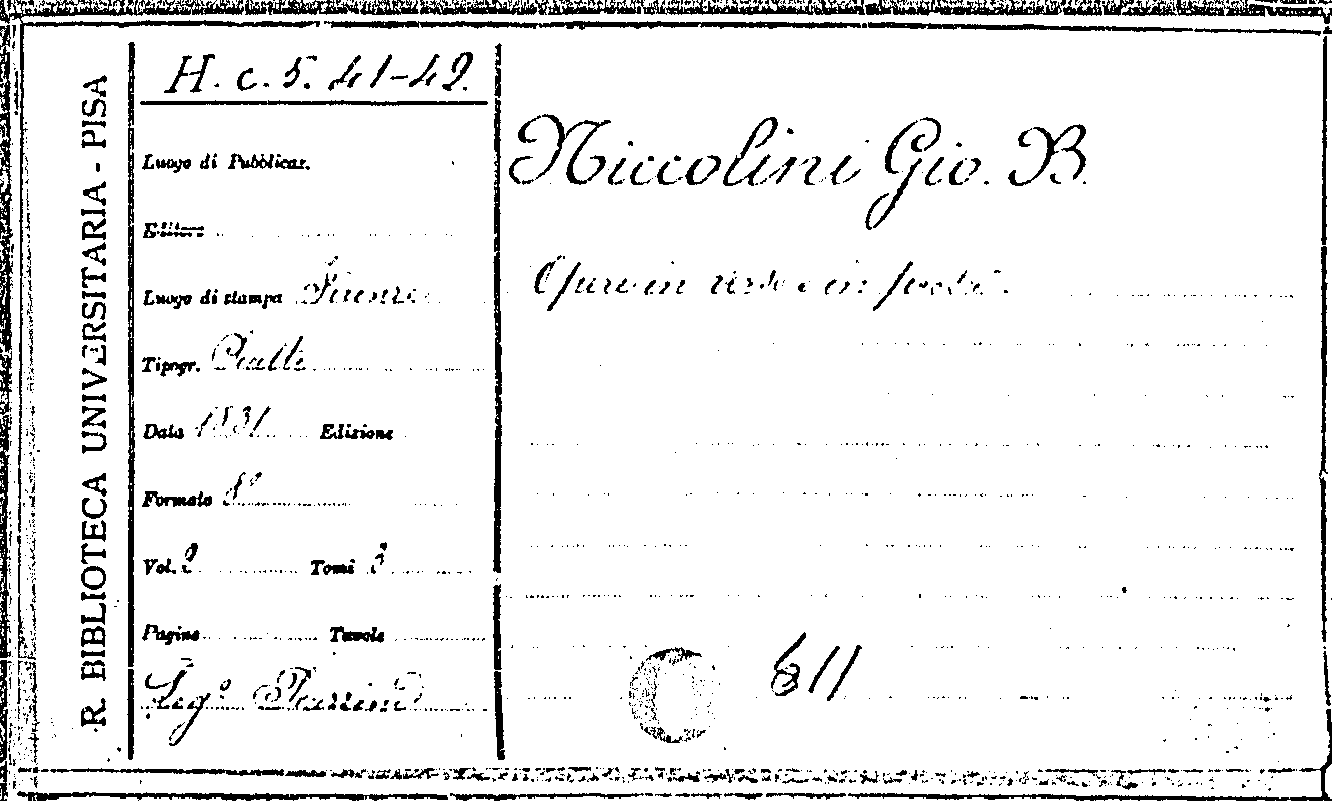 R. BIBLIOTECA UNIVERSITARIA - PISA
H. c. 5. 41-42.
Luogo di Pubblicaz.
Editore
Luogo di stampa Firenze
Tipogr. Piatti
Data 1831 Edizione
Formato 8°
Vol. 2 Tomi 3
Pagine Tavole
Leg.°
Niccolini Gio. B.
Opere in verso e in prosa.
611